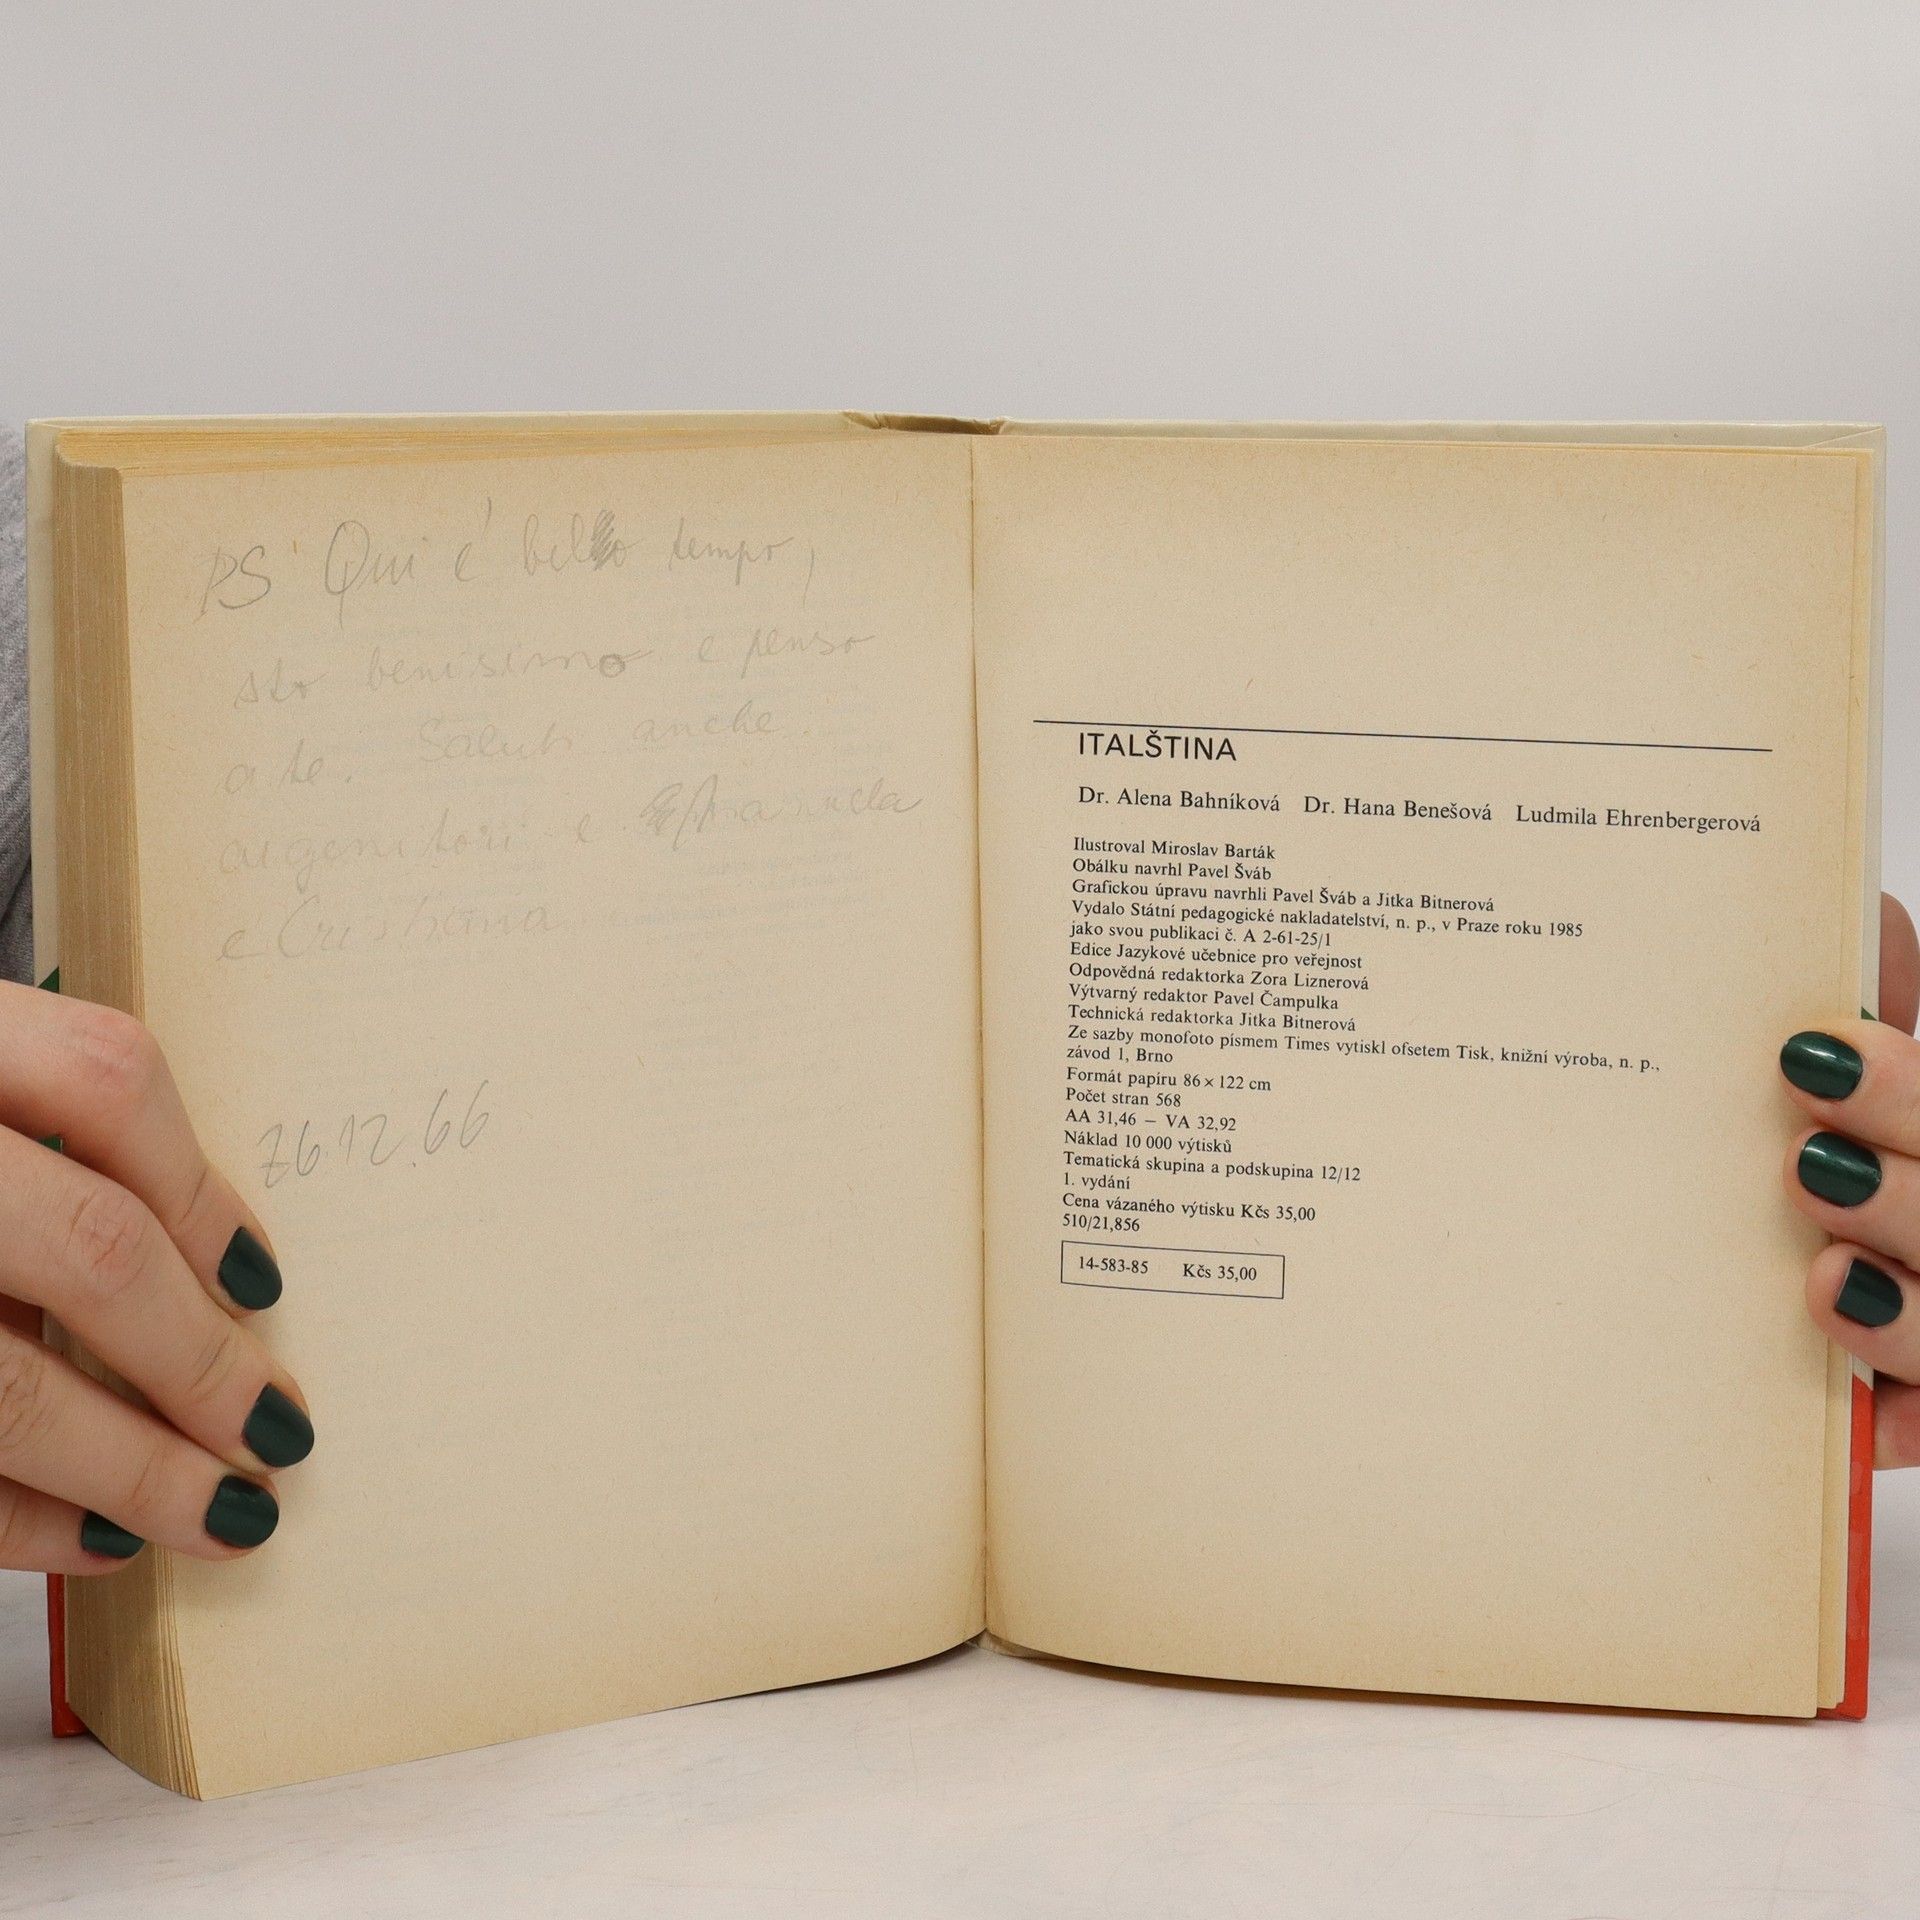 PS Qui é bello tempo,
sto benisimo e penso
a te. Saluti anche
ai genitori e Emanuela
e Cristiana
26.12.66
ITALŠTINA
Dr. Alena Bahníková Dr. Hana Benešová Ludmila Ehrenbergerová
Ilustroval Miroslav Barták
Obálku navrhl Pavel Šváb
Grafickou úpravu navrhli Pavel Šváb a Jitka Bitnerová
Vydalo Státní pedagogické nakladatelství, n. p., v Praze roku 1985
jako svou publikaci č. A 2-61-25/1
Edice Jazykové učebnice pro veřejnost
Odpovědná redaktorka Zora Liznerová
Výtvarný redaktor Pavel Čampulka
Technická redaktorka Jitka Bitnerová
Ze sazby monofoto písmem Times vytiskl ofsetem Tisk, knižní výroba, n. p.,
závod 1, Brno
Formát papíru 86 × 122 cm
Počet stran 568
AA 31,46 – VA 32,92
Náklad 10 000 výtisků
Tematická skupina a podskupina 12/12
1. vydání
Cena vázaného výtisku Kčs 35,00
510/21,856
14-583-85 Kčs 35,00